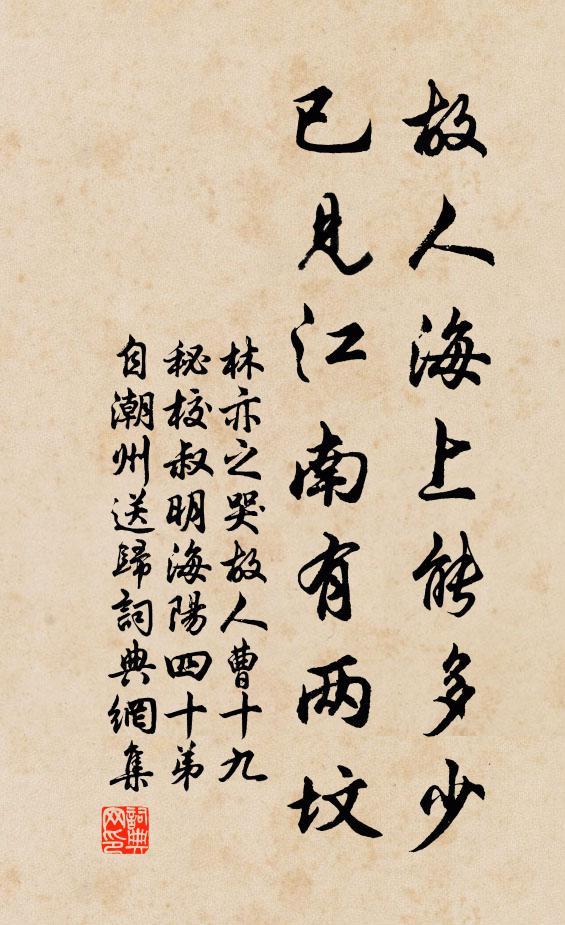 故人海上能多少
已见江南有两坟
林亦之哭故人曹十九
秘校叔明海陽四十弟
自潮州送歸詞典網集
詞典网印